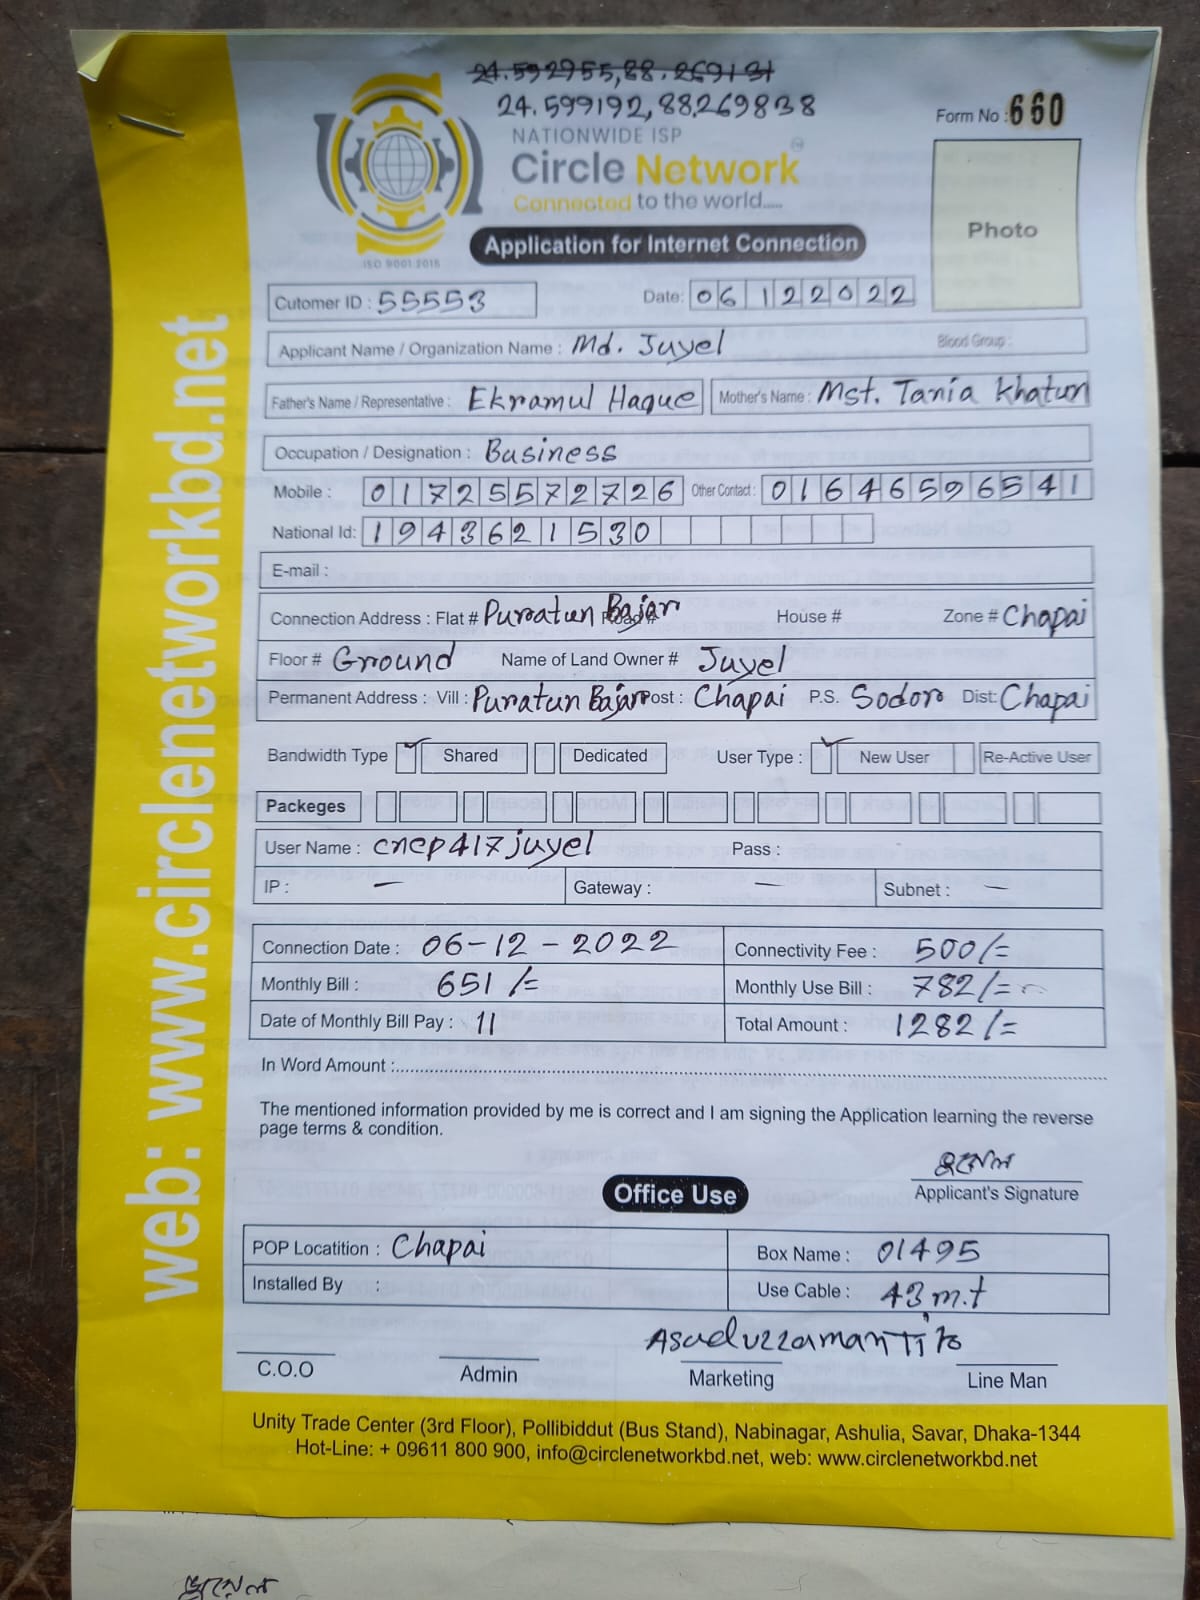 24.592955,88.269131
24.599192,88.269838
Form No : 660
NATIONWIDE ISP
Circle Network
Connected to the world.....
Photo
Application for Internet Connection
ISO 9001:2015
Cutomer ID : 55553
Date: 06 12 2022
Applicant Name / Organization Name : Md. Juyel Blood Group :
Father's Name / Representative : Ekramul Haque Mother's Name : Mst. Tania Khatun
Occupation / Designation : Business
Mobile : 01725572726 Other Contact : 01646596541
National Id: 1943621530
E-mail :
Connection Address : Flat # Puratun Bajar Road # House # Zone # Chapai
Floor # Ground Name of Land Owner # Juyel
Permanent Address : Vill : Puratun Bajar Post : Chapai P.S. Sodor Dist: Chapai
Bandwidth Type Shared Dedicated User Type : New User Re-Active User
Packeges
User Name : cnep417juyel Pass :
IP : — Gateway : — Subnet : —
Connection Date : 06-12-2022 Connectivity Fee : 500/=
Monthly Bill : 651/= Monthly Use Bill : 782/=
Date of Monthly Bill Pay : 11 Total Amount : 1282/=
In Word Amount :
The mentioned information provided by me is correct and I am signing the Application learning the reverse
page terms & condition.
জুয়েল
Applicant's Signature
Office Use
POP Locatition : Chapai Box Name : 01495
Installed By : Use Cable : 43 m.t
Asaduzzaman Tito
C.O.O Admin Marketing Line Man
Unity Trade Center (3rd Floor), Pollibiddut (Bus Stand), Nabinagar, Ashulia, Savar, Dhaka-1344
Hot-Line: + 09611 800 900, info@circlenetworkbd.net, web: www.circlenetworkbd.net
web: www.circlenetworkbd.net
জুয়েল